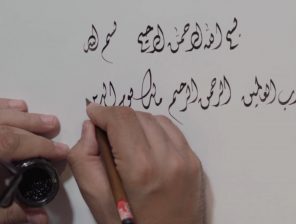 بسم الله الرحمن الرحيم بسم الله
رب العالمين الرحمن الرحيم مالك يوم الدين